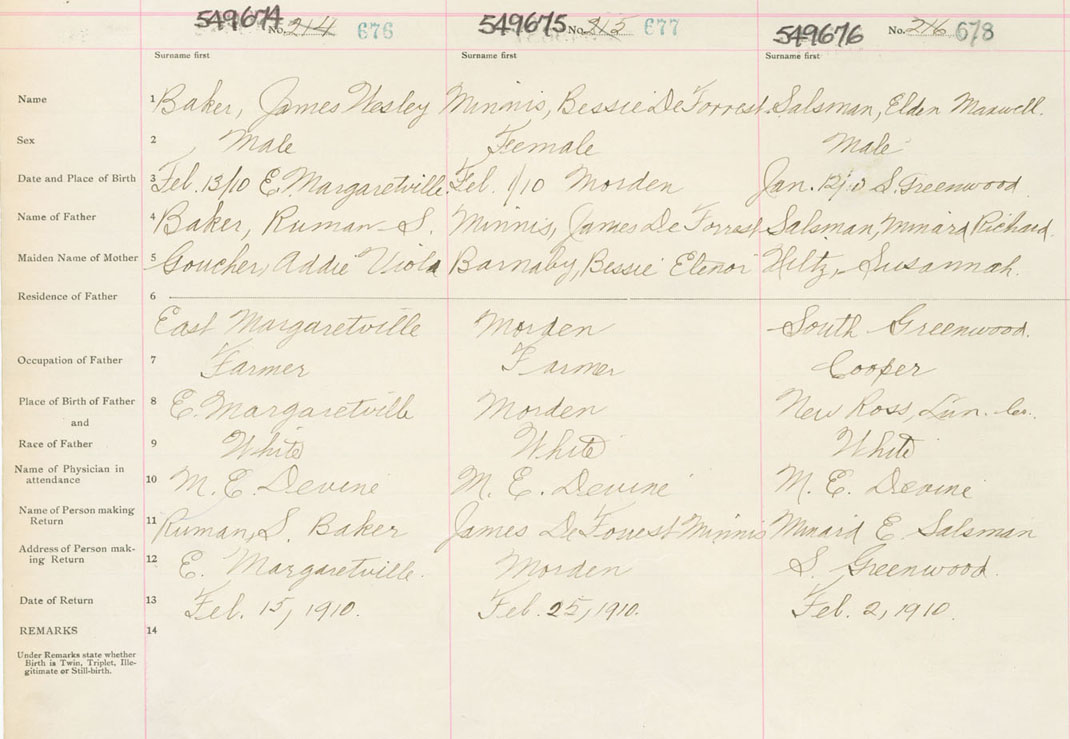 549674 No. 214 676 549675 No. 215 677 549676 No. 216 678
Surname first Surname first Surname first
Name 1 Baker, James Wesley Minnis, Bessie DeForrest Salsman, Elden Maxwell.
Sex 2 Male Female Male
Date and Place of Birth 3 Feb. 13/10 E. Margaretville. Feb. 1/10 Morden Jan. 12/10 S. Greenwood
Name of Father 4 Baker, Ruman S. Minnis, James DeForrest Salsman, Minard Richard.
Maiden Name of Mother 5 Goucher, Addie Viola Barnaby, Bessie Elenor Hiltz, Susannah.
Residence of Father 6
East Margaretville Morden South Greenwood.
Occupation of Father 7 Farmer Farmer Cooper
Place of Birth of Father 8 E. Margaretville Morden New Ross, Lun. Co.
and
Race of Father 9 White White White
Name of Physician in
attendance 10 M. E. Devine M. E. Devine M. E. Devine
Name of Person making
Return 11 Ruman, S. Baker James DeForrest Minnis Minard E Salsman
Address of Person mak-
ing Return 12 E. Margaretville. Morden S. Greenwood.
Date of Return 13 Feb. 15, 1910. Feb. 25, 1910. Feb. 2, 1910.
REMARKS 14
Under Remarks state whether
Birth is Twin, Triplet, Ille-
gitimate or Still-birth.